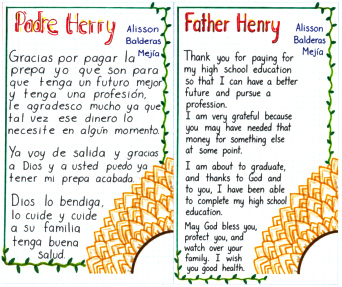 Padre Henry
Alisson
Balderas
Mejía
Gracias por pagar la
prepa yo que son para
que tenga un futuro mejor
y tenga una profesión,
le agradesco mucho ya que
tal vez ese dinero lo
necesite en algún momento.
Ya voy de salida y gracias
a Dios y a usted puedo ya
tener mi prepa acabada.
Dios lo bendiga,
lo cuide y cuide
a su familia
tenga buena
salud.
Father Henry
Alisson
Balderas
Mejía
Thank you for paying for
my high school education
so that I can have a better
future and pursue a
profession.
I am very grateful because
you may have needed that
money for something else
at some point.
I am about to graduate,
and thanks to God and
to you, I have been able
to complete my high school
education.
May God bless you,
protect you, and
watch over your
family. I wish
you good health.